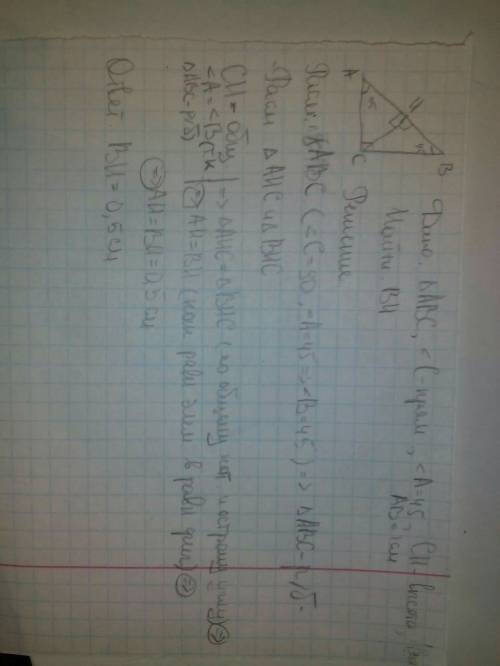 Дано: △ABC, <C-прям, <A=45, CH-высота,
AB=1см
Найти: BH
A
B
C
H
45
45
Решение
Рассм. △ABC (<C=90, <A=45=><B=45) => △ABC-р/б.
Рассм △AHC и △BHC
CH-общ
<A=<B (т.к
△ABC-р/б)
=> △AHC=△BHC (по общему кат и острому углу) =>
=> AH=BH (как равн элем в равн фигур) =>
=> AH=BH=0,5см
Ответ: BH=0,5см